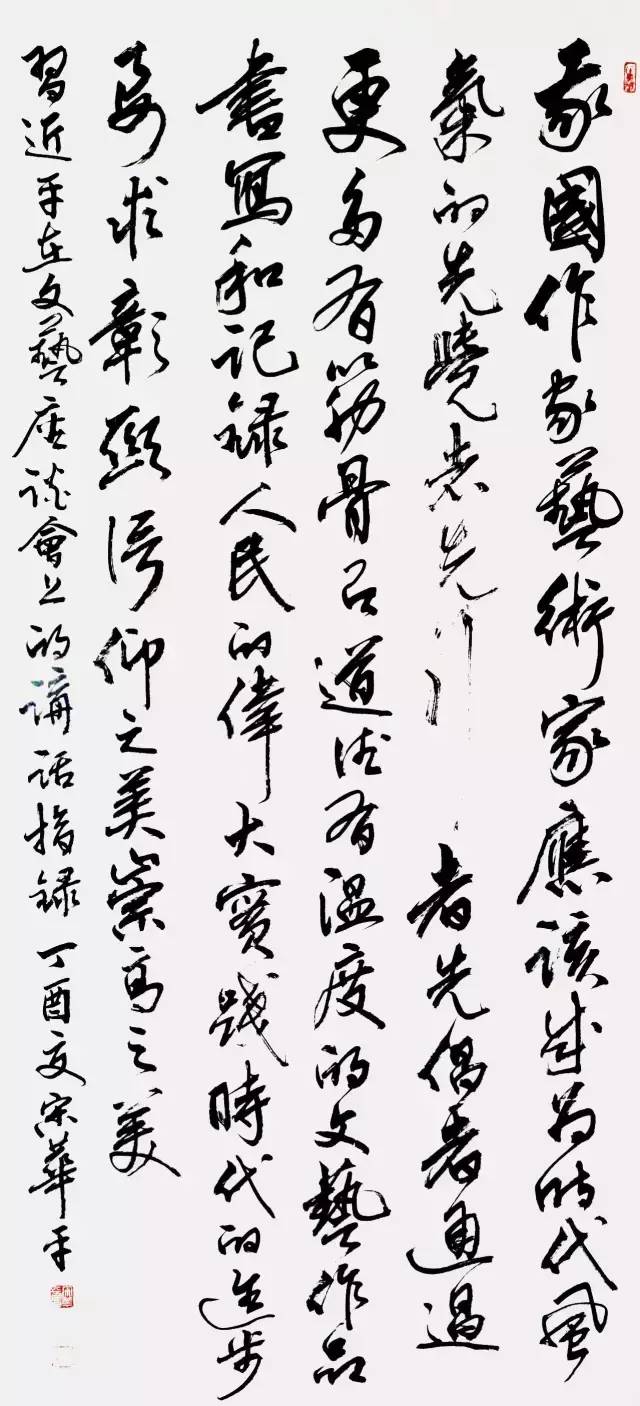 我國作家藝術家應該成為時代風
氣的先覺者先行者先倡者通過
更多有筋骨有道德有溫度的文藝作品
書寫和記録人民的偉大實踐時代的進步
要求彰顯信仰之美崇高之美
習近平在文藝座談會上的講話摘録 丁酉夏宋華平